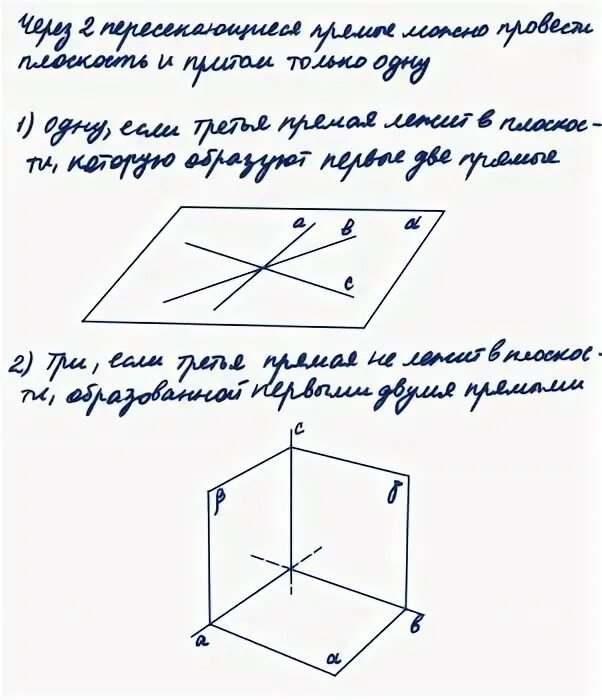 Через 2 пересекающиеся прямые можно провести
плоскость и притом только одну
1) Одну, если третья прямая лежит в плоскос-
ти, которую образуют первые две прямые
a
в
α
c
2) Три, если третья прямая не лежит в плоскос-
ти, образованной первыми двумя прямыми
c
β
γ
a
в
α